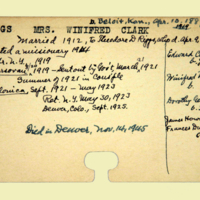 GS MRS. WINIFRED CLARK
b. Beloit, Kan., Apr. 10, 188
Married 1912, to Theodore D. Riggs, who d. Apr. 9
ted a missionary 1914
r. N.Y. 1919
1919 - Sent out by Gov't March, 1921
Summer of 1921 - in
onica, Sept. 1921 - May 1923
Ret. N.Y. May 30, 1923
Denver, Colo., Sept. 1925.
Died in Denver, Nov. 14, 1945
Edward C
Winifred
Dorothy
James How
Frances